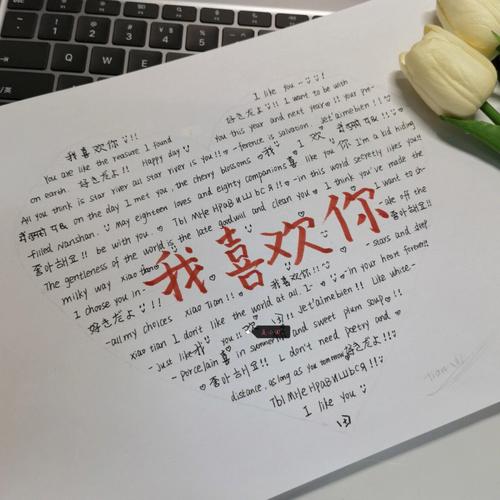 I like you
我喜欢你 !!
You are like the reason I found
好きだよ!! I want to be with
on earth. 好きだよ!! Happy day
you this year and next year!! Your pre-
All you think is star river all star river is you!!
-ference is salvation. Jet'aimeben!!!
on the day I met you, the cherry blossoms
我 I 欢
like you 你 I'm a kid hiding
filled Nanshan.
May eighteen loves and eighty companions 喜
-in this world secretly likes you!!
좋아해요!! be with you.
Tbl MHe HPaBИШbcЯ
I think you've made the
The gentleness of the world is the late goodwill and clean you
I want to
milky way xiao
我喜欢你
I choose you in
-ate off the
좋아해요!!
好きだよ!!!
-stars and deep
-all my choices xiao Tian!!
我喜欢你!!
xiao tian I don't like the world at all. I
in your heart forever!!
-Just like 我 you!!
Jet'aimeben!! Like white-
-porcelain 喜 in summer and sweet plum soup
좋아해요!! I don't need poetry and
distance, as long as you 好きだよ!!
Tbl MHe HPaBИШbcЯ!!
I like you